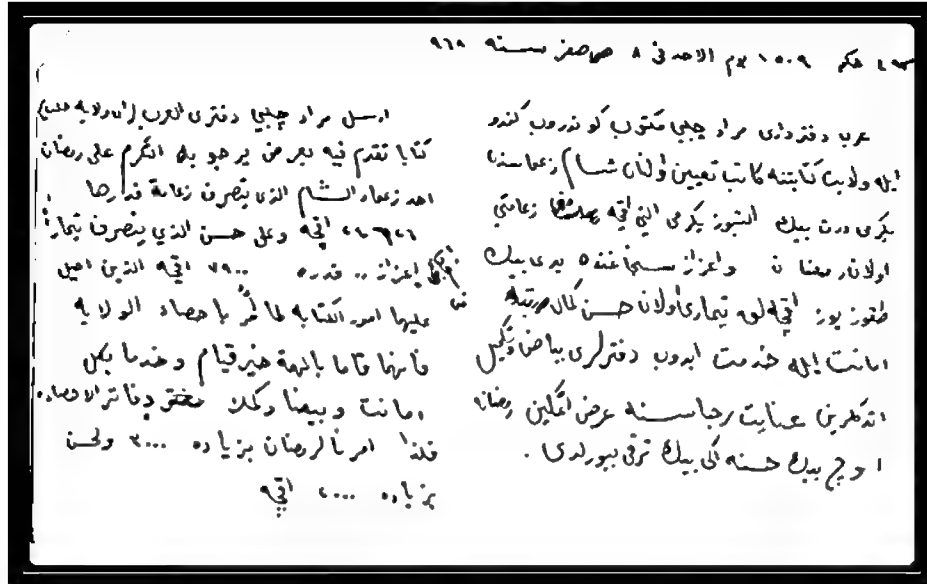 ٤٩٣ حكم ١٥٠٩ يوم الاحد فى ٨ صفر سنه ٩٦٨
عرب دفتردارى مراد چلبى مكتوب كوندروب كندو
ايله ولايت كتابتنه كاتب تعيين اولنان شام زعماسندن
يكرمى درت بيك التيوز يكرمى التى اقچه زعامتى
اولان رمضان و اعزاز سنجاغنده يدى بيك
طقوز يوز اقچه لق تيمارى اولان حسن كمال مرتبه
امانت ايله خدمت ايدوب دفترلرى بياض و تكميل
اتدكلرين عنايت رجاسنه عرض اتمكين رمضانه
اوچ بيك حسنه اكى بيك ترقى بيورلدى .
ارسل مراد چلبي دفترى العرب (اى ولاية حلب)
كتابا تقدم فيه بعرض يرجو به التكرم على رمضان
احد زعماء الشام الذى يتصرف زعامة قدرها
٢٤٦٢٦ اقچه وعلى حسن الذي يتصرف تيمارا
اعزاز .. قدره ٧٩٠٠ اقچه الذين احيل
عليها امور الكتابه باحصاء الولايه
فانهما قاما بالمهمة خير قيام وخدما بكل
امانت وبيضا وكملا دفاتر الاحصاء
فلذا امرنا لرمضان بزياده ٣٠٠٠ ولحسن
بزياده ٢٠٠٠ اقچه